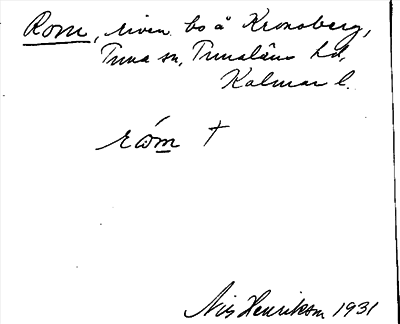 Rom, riven bo å Kronoberg,
Tuna sn, Tunaläns hd,
Kalmar l.
róm †
Nils Henrikson 1931